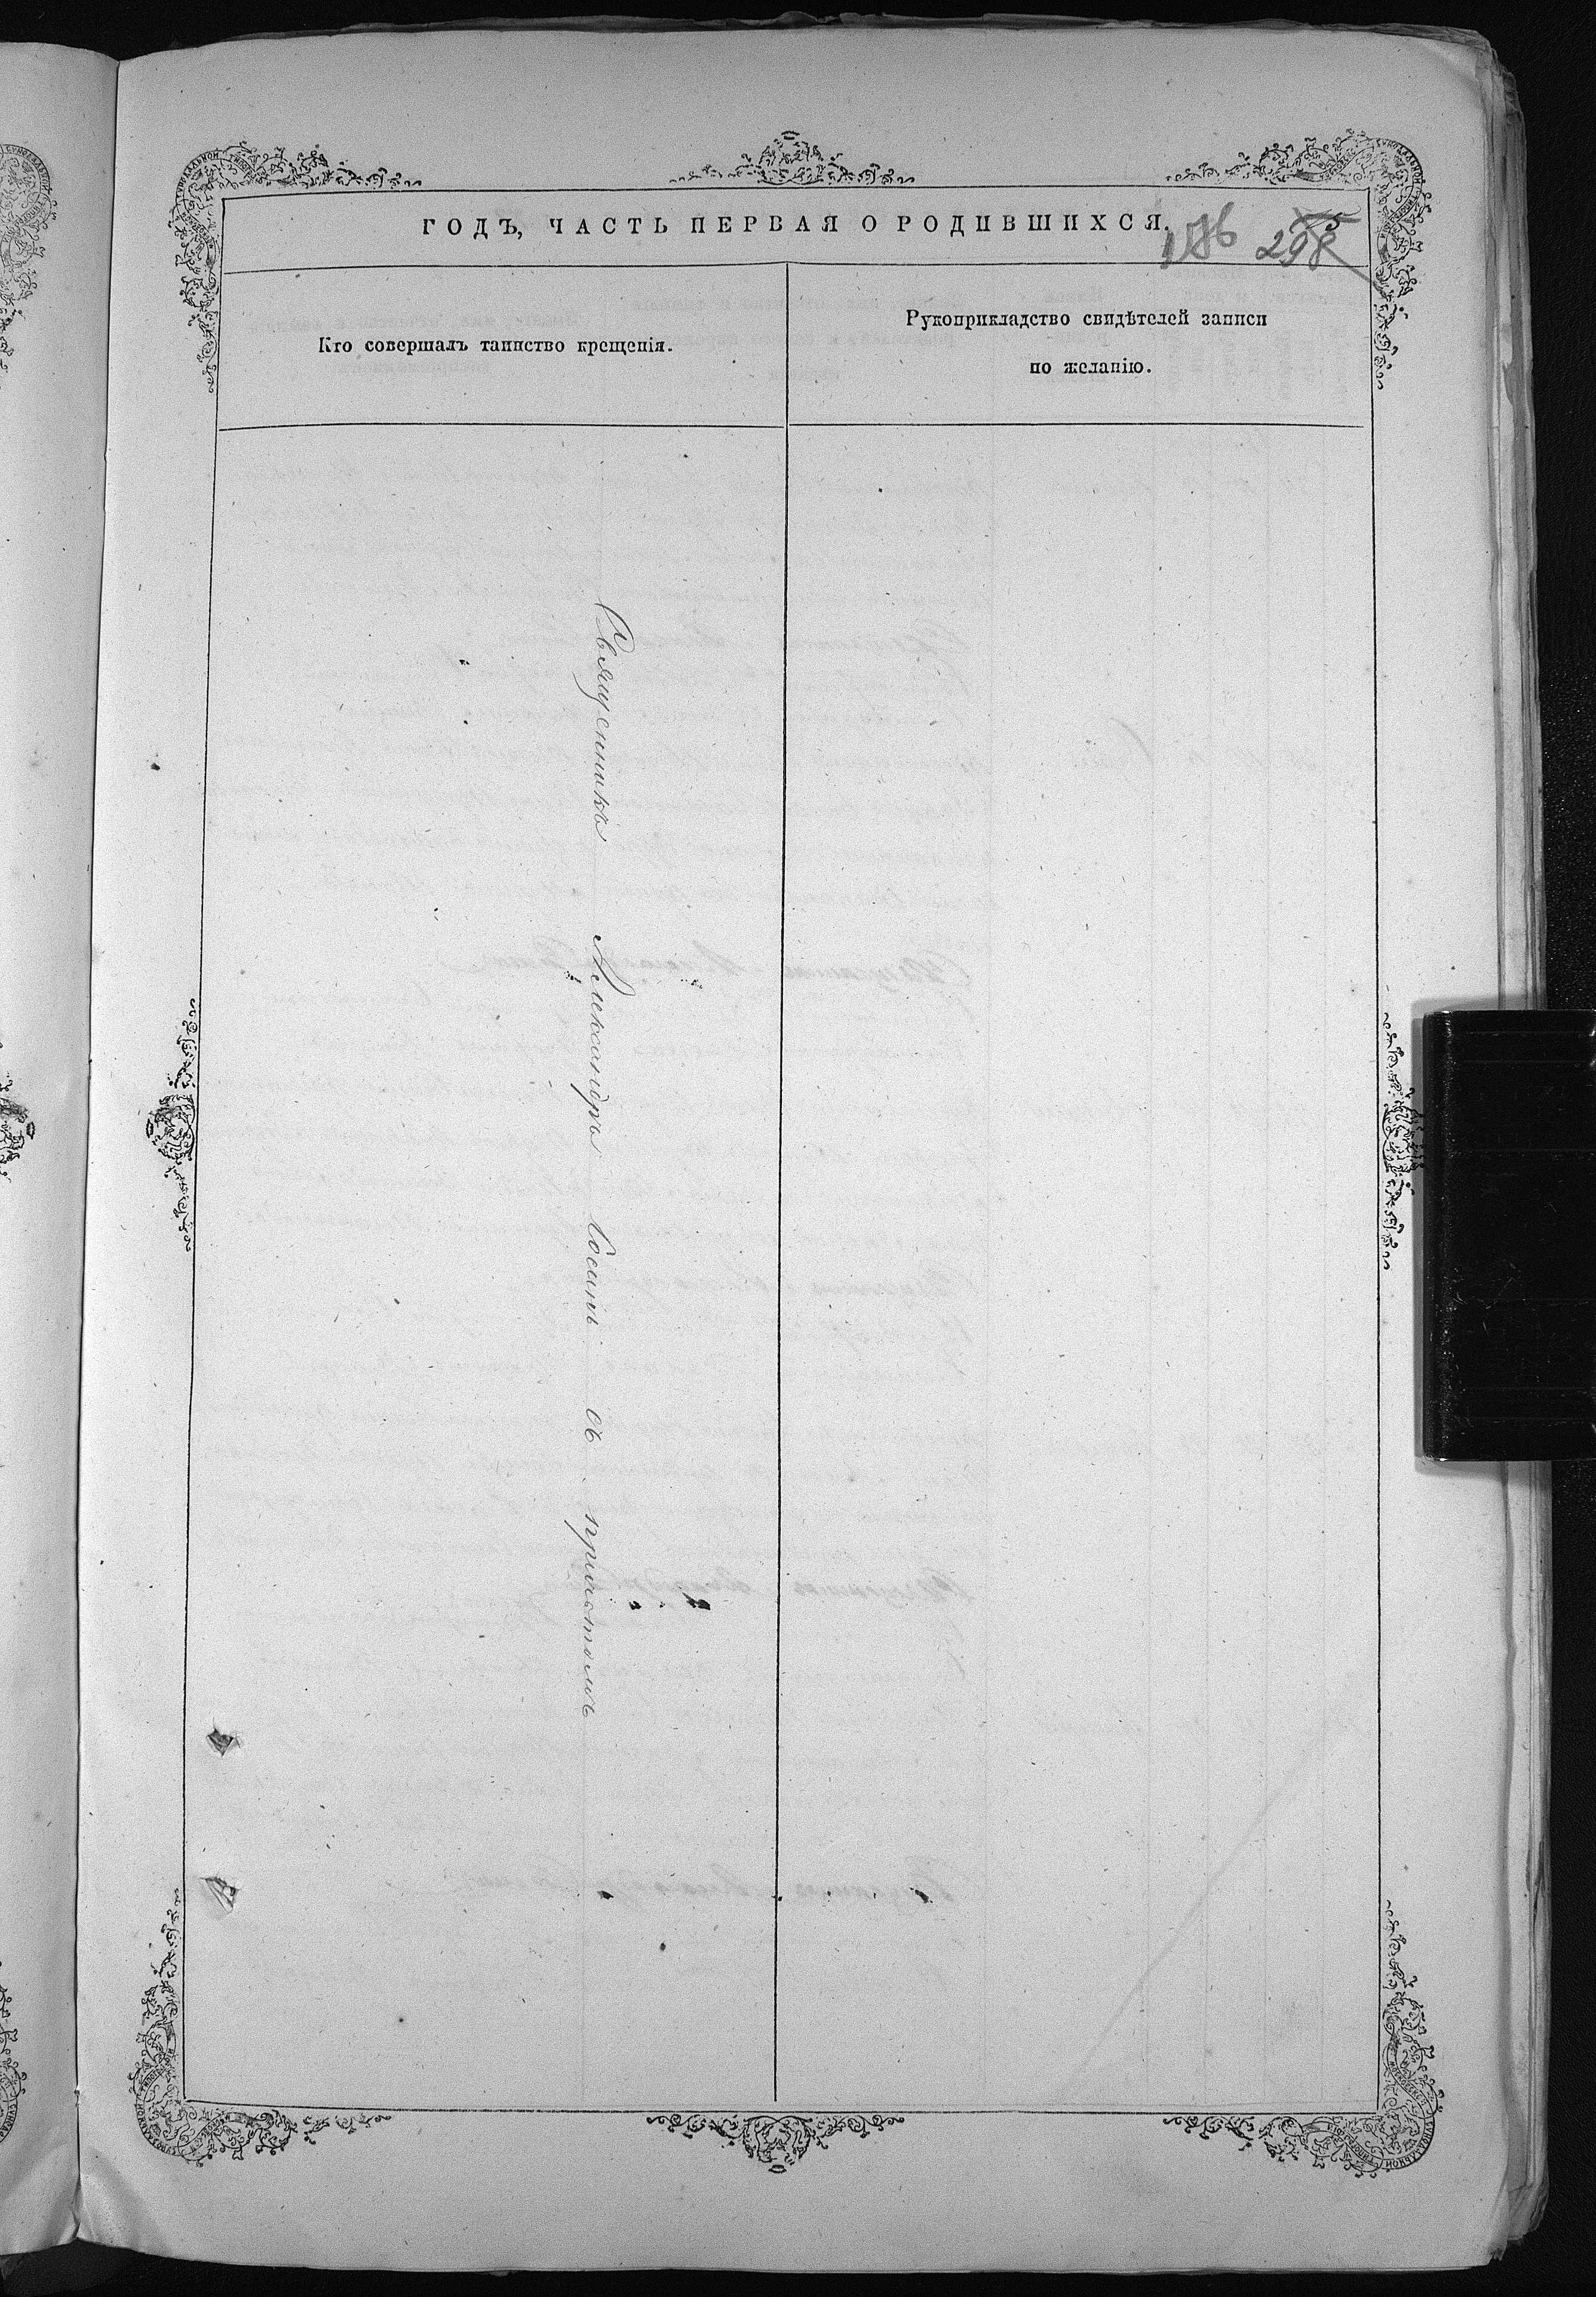 ГОДЪ, ЧАСТЬ ПЕРВАЯ О РОДИВШИХСЯ.
186 298 5
Кто совершалъ таинство крещенія.
Рукоприкладство свидѣтелей записи
по желанію.
Священникъ Александръ съ причтомъ